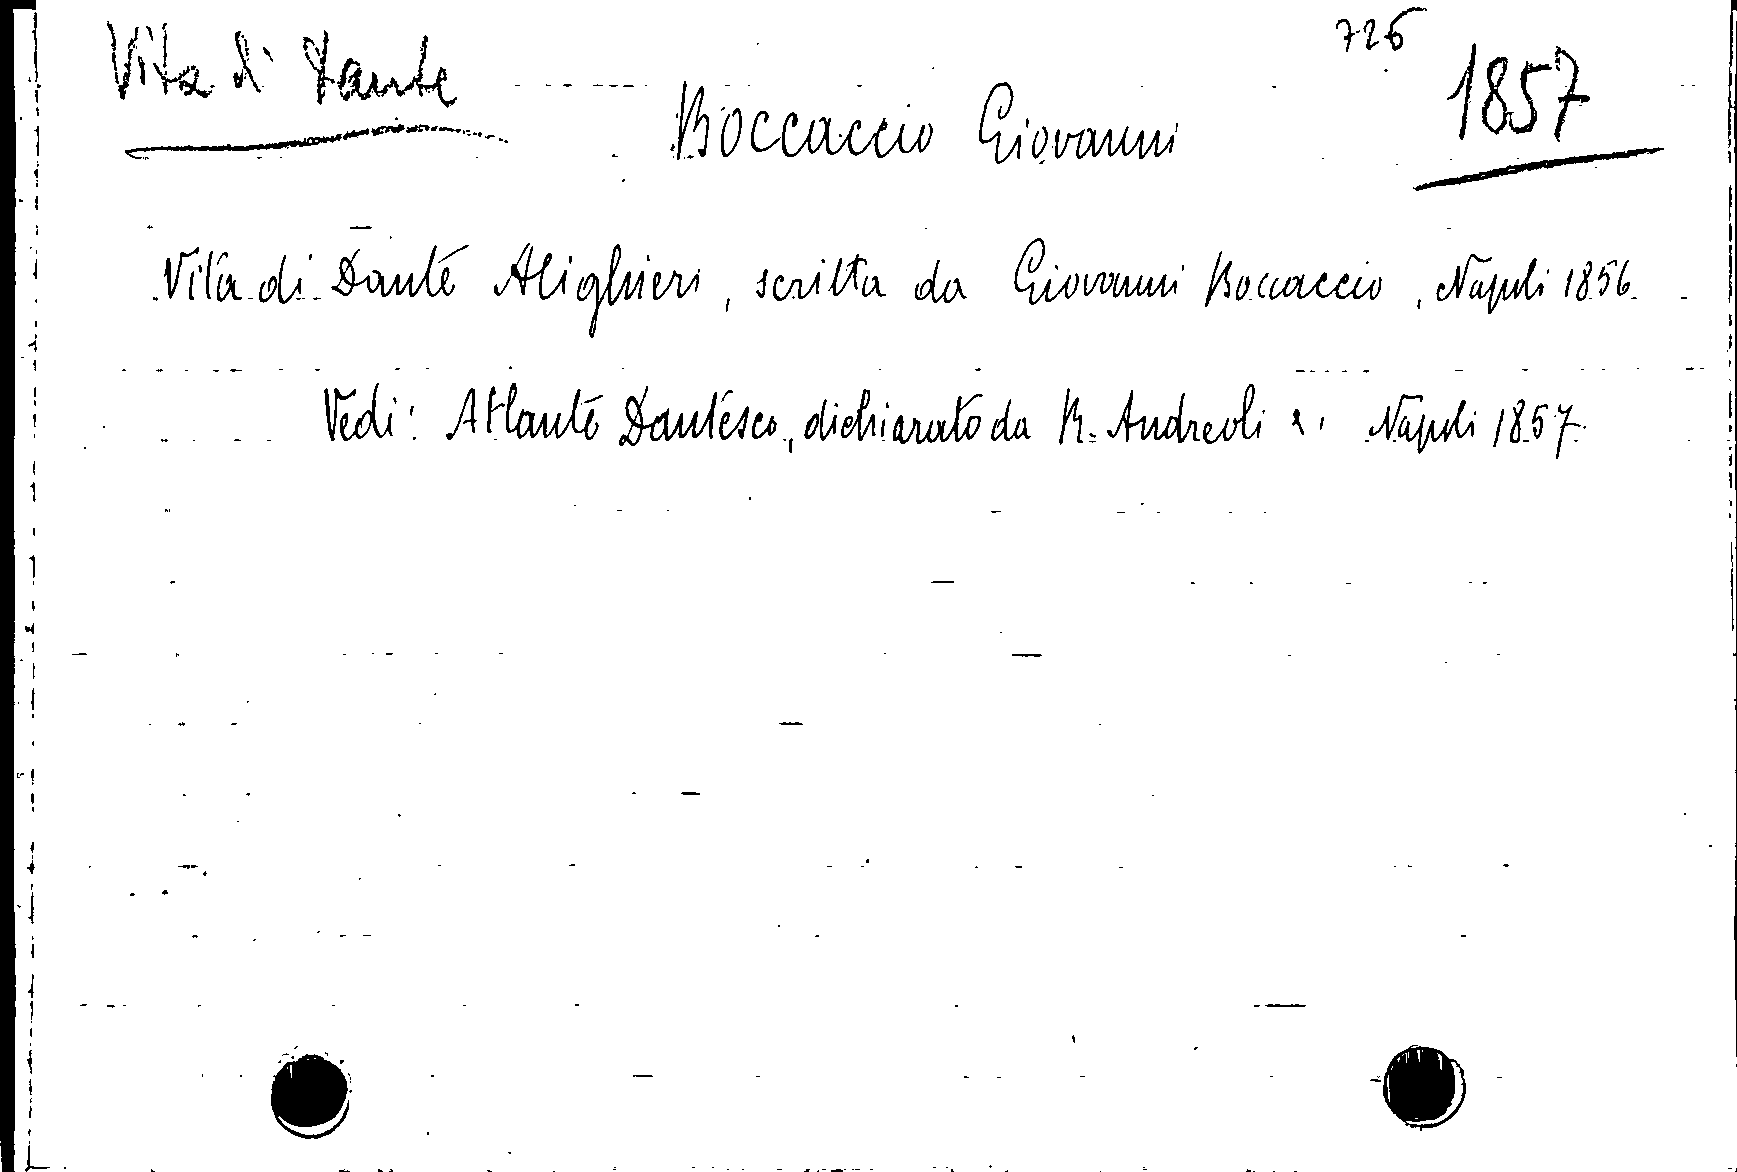 Vita di Dante
726
1857
Boccaccio Giovanni
Vita di Dante Alighieri, scritta da Giovanni Boccaccio, Napoli 1856.
Vedi: Atlante Dantesco, dichiarato da R. Andreoli Napoli 1857.